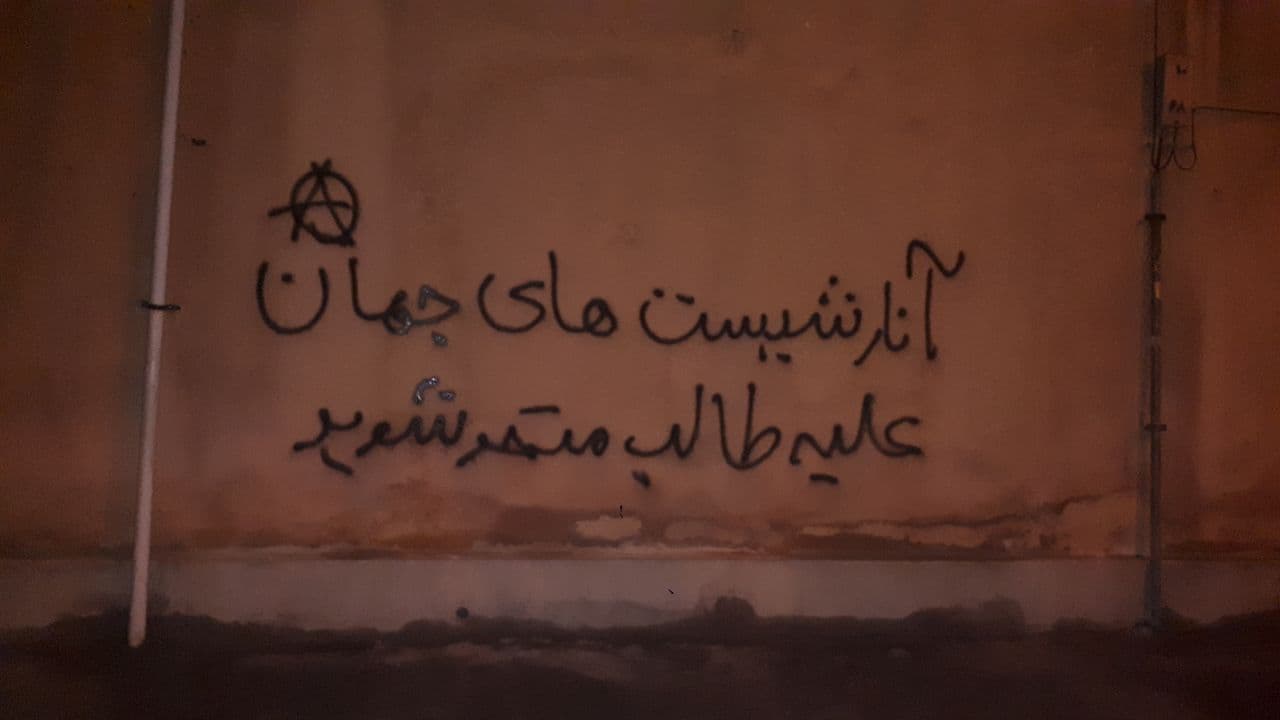 آنارشیست های جهان
علیه طالب متحد شوید